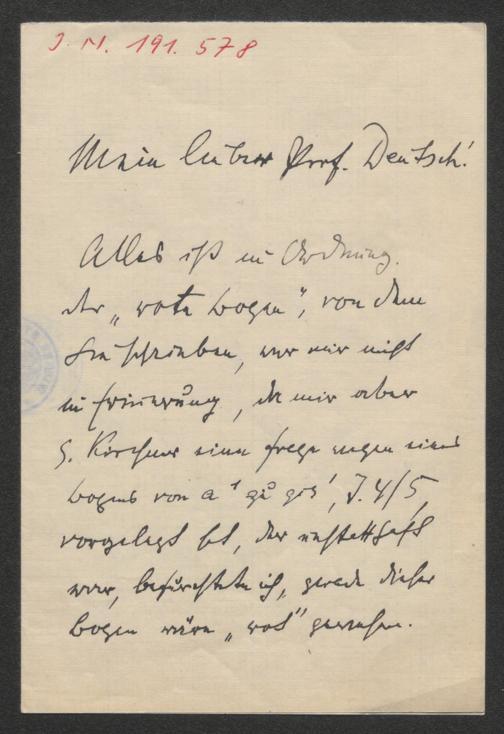 J. N. 191.578
Mein lieber Prof. Deutsch!
Alles ist in Ordnung.
der „rote Bogen“, von dem
Sie schreiben, war mir nicht
in Erinnerung, da mir aber
H. Kirchner eine Frage wegen eines
Bogens von a¹ zu gis¹, T. 4/5,
vorgelegt hat, der unstatthaft
war, befürchtete ich, gerade dieser
Bogen wäre „rot“ gewesen.